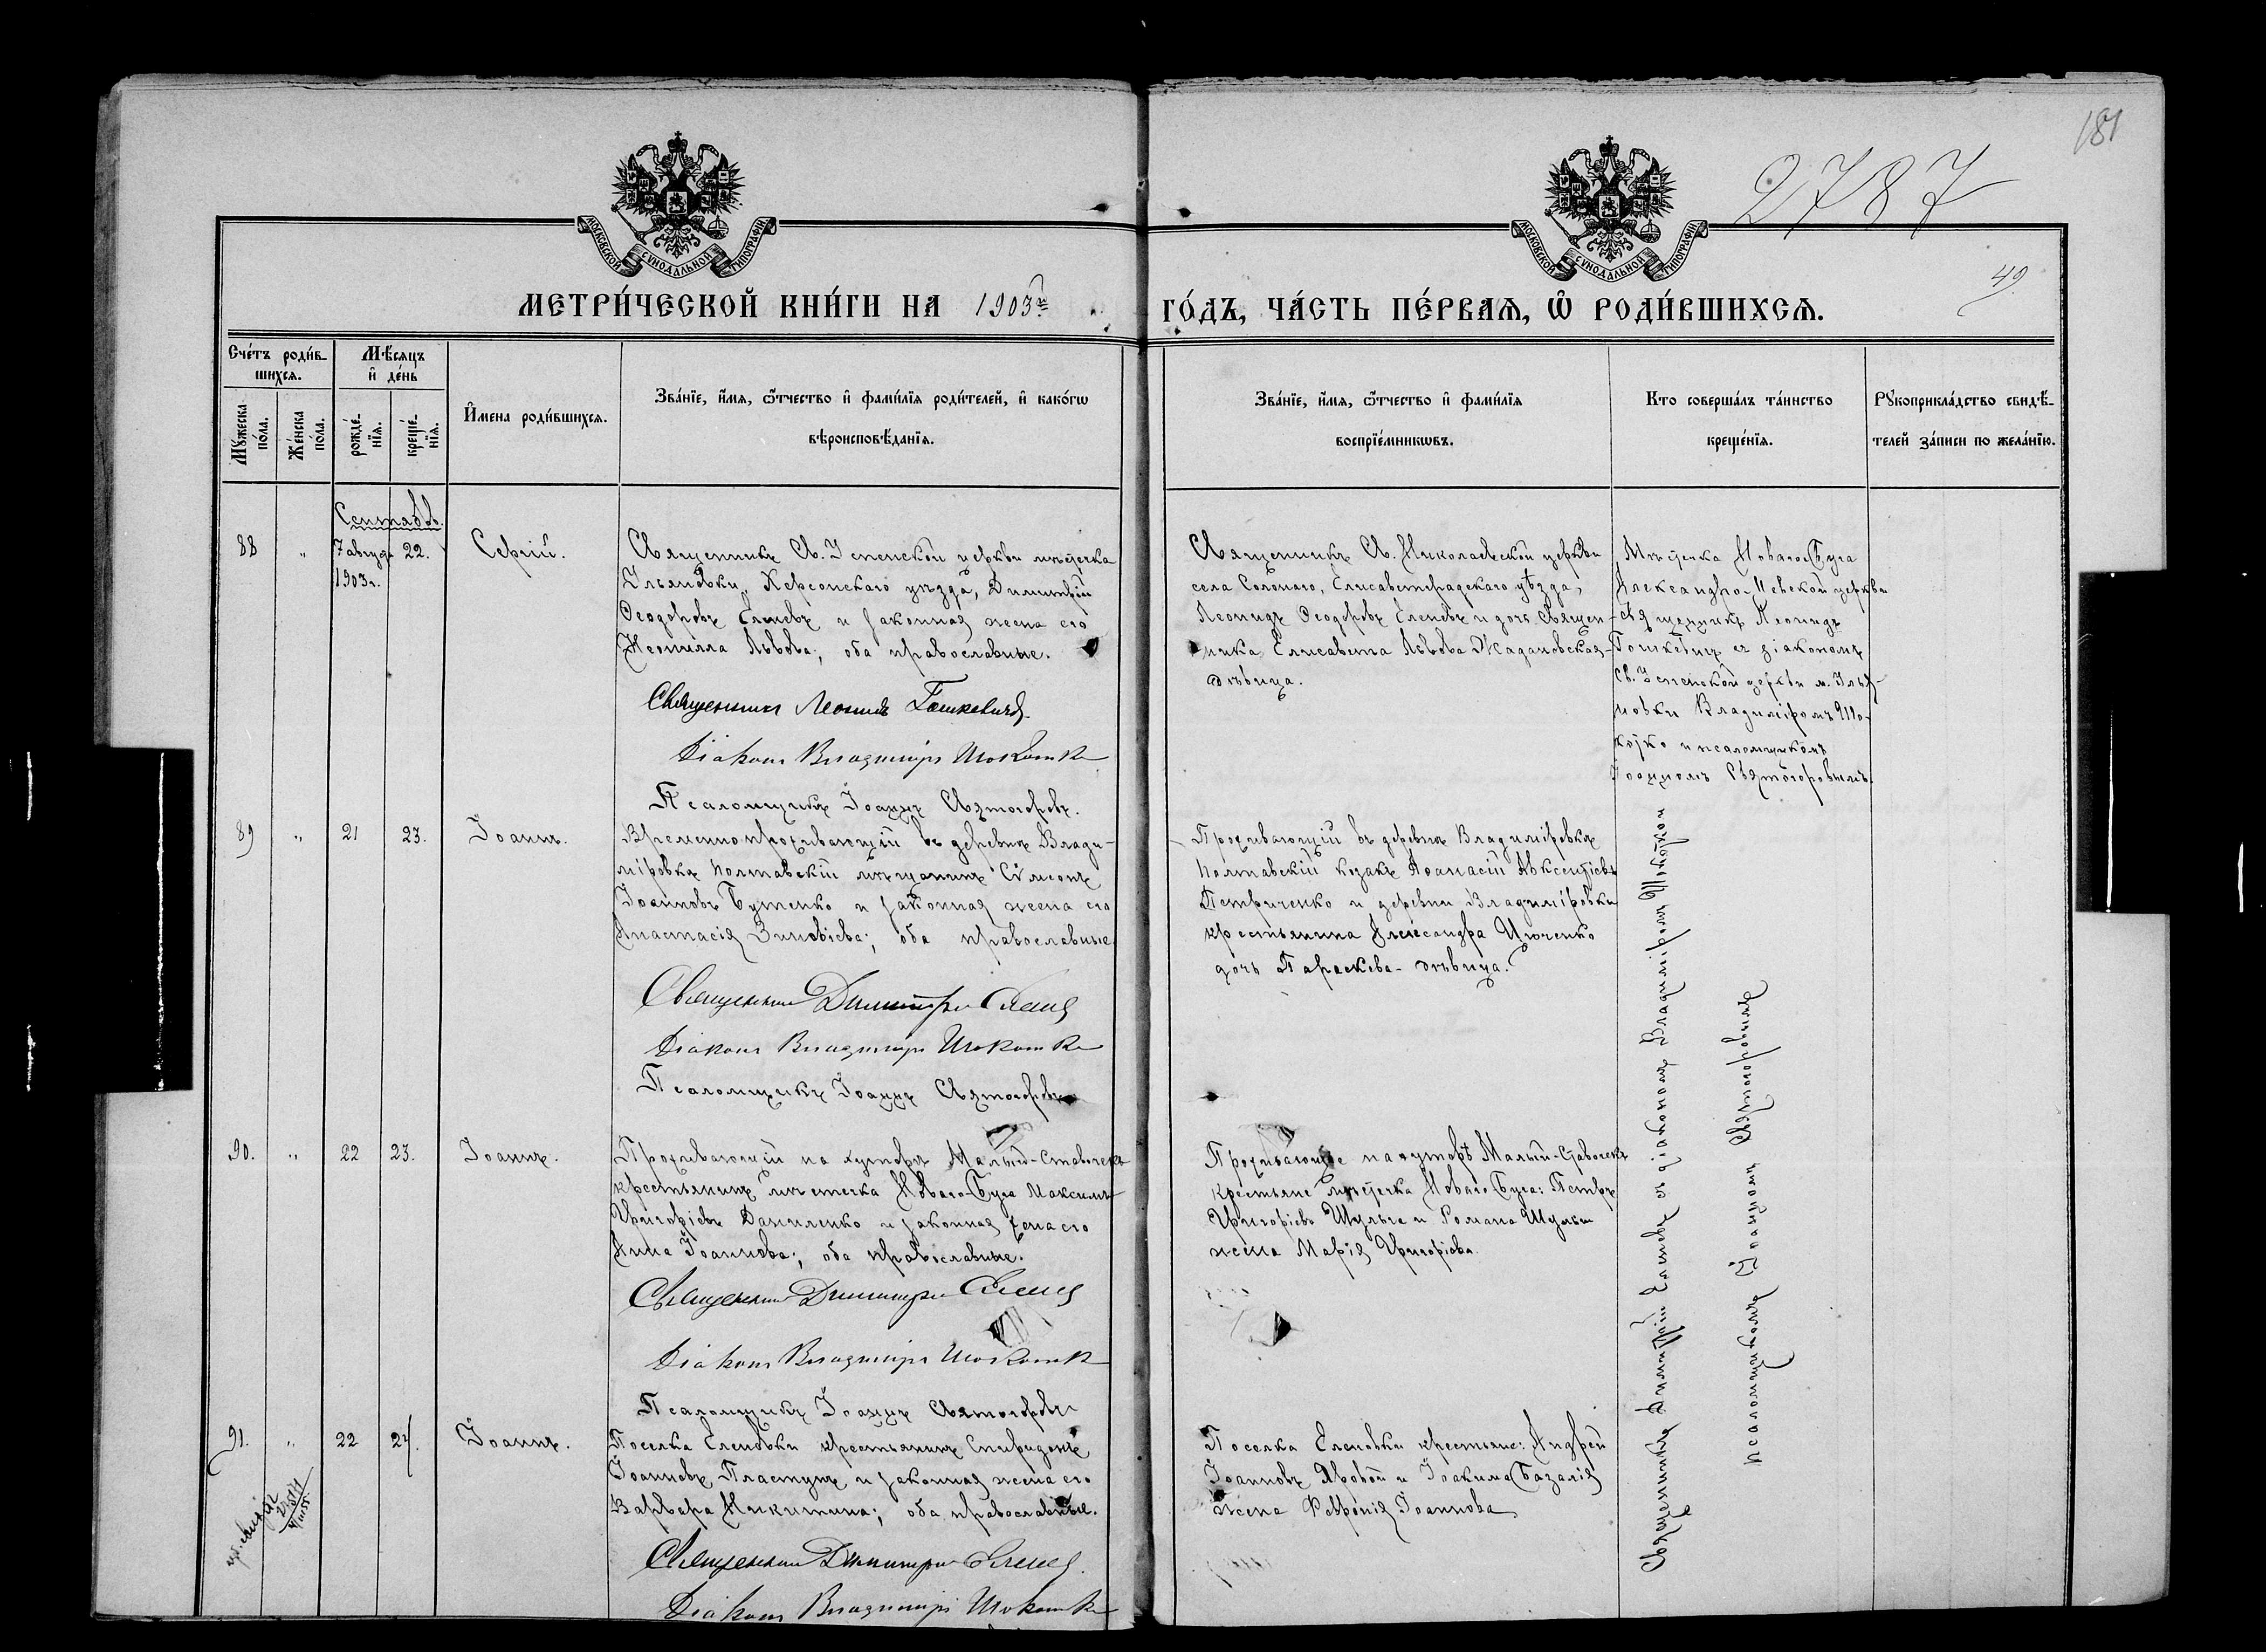 181
2787
49.
МОСКОВСКОЙ СУНОДАЛЬНОЙ ТИПОГРАФІИ
МОСКОВСКОЙ СУНОДАЛЬНОЙ ТИПОГРАФІИ
МЕТРИ́ЧЕСКОЙ КНИ́ГИ НА 1903й
ГО́ДЪ, ЧА́СТЬ ПЕ́РВАѦ, Ѿ РОДИ́ВШИХСѦ.
Сче́тъ роди́в-
шихсѧ.
Мѣ́сѧцъ
и҆ де́нь
Мꙋ́жеска
по́ла.
Же́нска
по́ла.
рожде́-
нїѧ.
креще́-
нїѧ.
И҆́мена роди́вшихсѧ.
Зва́нїе, и҆́мѧ, ѻ҆́тчество и҆ фами́лїѧ роди́телей, и҆ како́гѡ
вѣроисповѣ́данїѧ.
Зва́нїе, и҆́мѧ, ѻ҆́тчество и҆ фами́лїѧ
воспрїе́мникѡвъ.
Кто соверша́лъ та́инство
креще́нїѧ.
Рꙋкоприкла́дство свидѣ́-
телей за́писи по жела́нїю.
Сентябрь.
88 " 7 августа 22. Сергій.
1903 г.
Священникъ Св. Успенской церкви мѣстечка
Ульяновки, Херсонскаго уѣзда, Димитрій
Ѳеодоровъ Еленевъ и законная жена его
Неонилла Львова; оба православные.
Священникъ Леонидъ Гошкевичъ.
Діаконъ Владиміръ Шокотко
Псаломщикъ Іоаннъ Святогоровъ.
Священникъ Св. Николаевской церкви
села Солонаго, Елисаветградскаго уѣзда,
Леонидъ Ѳеодоровъ Еленевъ и дочь священ-
ника Елисавета Львова Ждановская-
дѣвица.
Мѣстечка Новаго Буга
Александро-Невской церкви
священникъ Леонидъ
Гошкевичъ съ діакономъ
Св. Успенской церкви м. Улья-
новки Владиміромъ Шо-
котко и псаломщикомъ
Іоанномъ Святогоровымъ.
89 " 21 23. Іоаннъ.
Временно проживающій въ деревнѣ Влади-
міровкѣ Полтавскій мѣщанинъ Сѵмеонъ
Іоанновъ Бутенко и законная жена его
Анастасія Зиновіева; оба православные.
Священникъ Димитрій Еленевъ
Діаконъ Владиміръ Шокотко
Псаломщикъ Іоаннъ Святогоровъ
Проживающій въ деревнѣ Владиміровкѣ
Полтавскій козакъ Аѳанасій Авксентіевъ
Петриченко и деревни Владиміровки
крестьянина Александра
дочь Параскева - дѣвица.
90. " 22 23. Іоаннъ.
Проживающій на хуторѣ Малый-Ставочекъ
крестьянинъ мѣстечка Новаго-Буга Максимъ
Григоріевъ Даниленко и законная жена его
Анна Іоаннова; оба православные.
Священникъ Димитрій Еленевъ
Діаконъ Владиміръ Шокотко
Псаломщикъ Іоаннъ Святогоровъ
Проживающіе на хуторѣ Малый-Ставочекъ
крестьяне мѣстечка Новаго Буга: Петръ
Григоріевъ Шульга и Романа Шульги
жена Марія Григоріева.
91. " 22 24. Іоаннъ.
Поселка Еленовки крестьянинъ Спиридонъ
Іоанновъ Пластунъ и законная жена его
Варвара Никитина; оба православные.
Священникъ Димитрій Еленевъ.
Діаконъ Владиміръ Шокотко
Поселка Еленовки крестьяне: Андрей
Іоанновъ Яровой и Іоакима Базалія
жена Февронія Іоаннова
Священникъ Димитрій Еленевъ съ діакономъ Владиміромъ Шокоткой
псаломщикомъ Іоанномъ Святогоровымъ